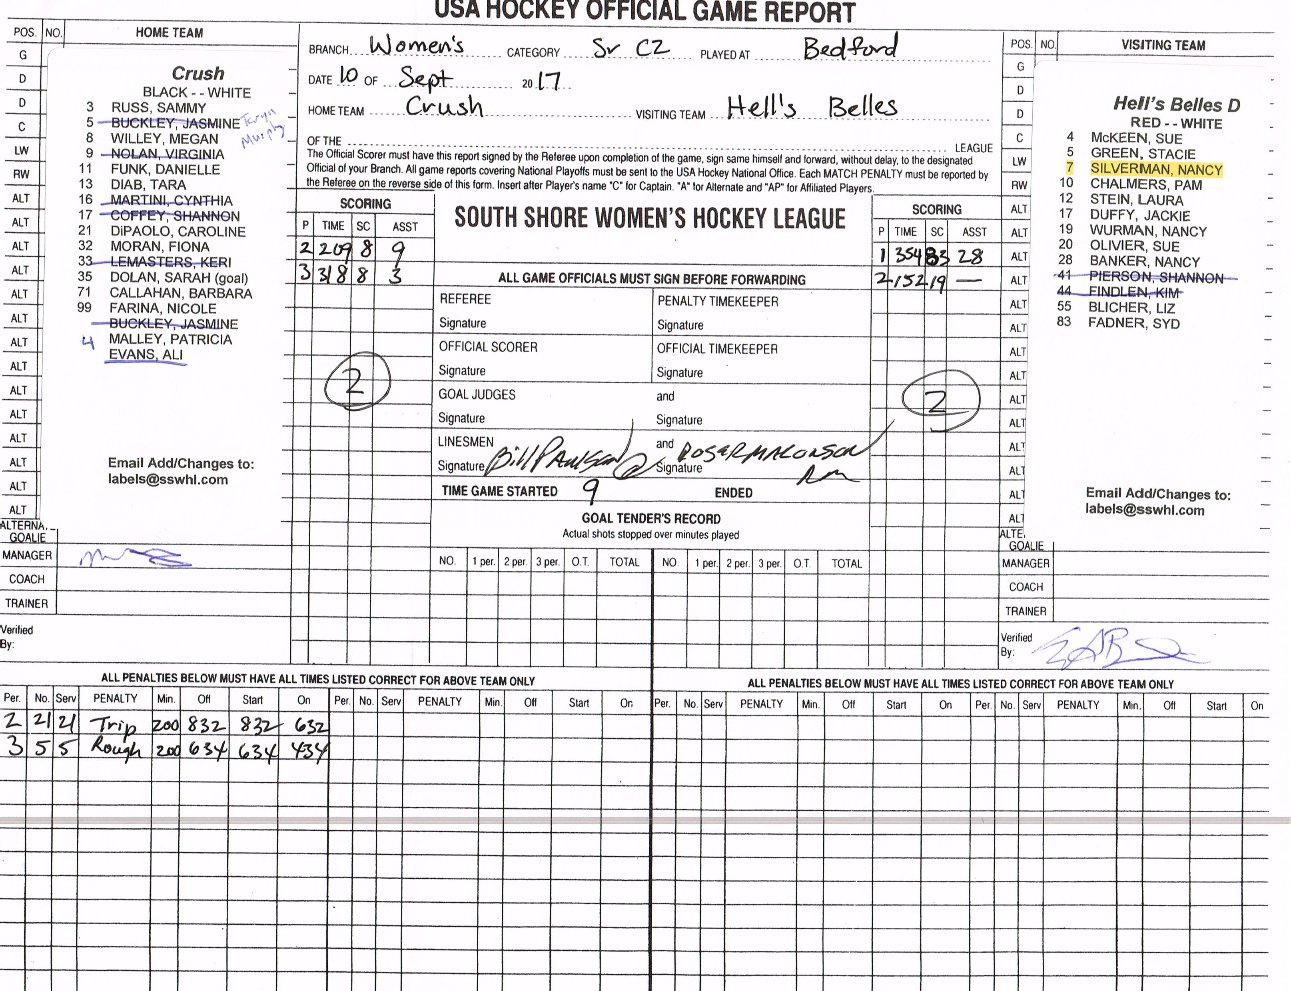 USA HOCKEY OFFICIAL GAME REPORT
POS. NO. HOME TEAM
G
D
D
C
LW
RW
ALT
ALT
ALT
ALT
ALT
ALT
ALT
ALT
ALT
ALT
ALT
ALT
ALT
ALT
ALTERNA.
GOALIE
MANAGER
COACH
TRAINER
Verified
By:
Crush
BLACK - - WHITE
3 RUSS, SAMMY
5 BUCKLEY, JASMINE Taryn Murphy
8 WILLEY, MEGAN
9 NOLAN, VIRGINIA
11 FUNK, DANIELLE
13 DIAB, TARA
16 MARTINI, CYNTHIA
17 COFFEY, SHANNON
21 DiPAOLO, CAROLINE
32 MORAN, FIONA
33 LEMASTERS, KERI
35 DOLAN, SARAH (goal)
71 CALLAHAN, BARBARA
99 FARINA, NICOLE
BUCKLEY, JASMINE
4 MALLEY, PATRICIA
EVANS, ALI
Email Add/Changes to:
labels@sswhl.com
BRANCH Women's CATEGORY Sr C2 PLAYED AT Bedford
DATE 10 OF Sept 2017
HOME TEAM Crush VISITING TEAM Hell's Belles
OF THE LEAGUE
The Official Scorer must have this report signed by the Referee upon completion of the game, sign same himself and forward, without delay, to the designated
Official of your Branch. All game reports covering National Playoffs must be sent to the USA Hockey National Office. Each MATCH PENALTY must be reported by
the Referee on the reverse side of this form. Insert after Player's name "C" for Captain. "A" for Alternate and "AP" for Affiliated Players.
SCORING
P TIME SC ASST
2 209 8 9
3 318 8 3
2
SOUTH SHORE WOMEN'S HOCKEY LEAGUE
ALL GAME OFFICIALS MUST SIGN BEFORE FORWARDING
REFEREE PENALTY TIMEKEEPER
Signature Signature
OFFICIAL SCORER OFFICIAL TIMEKEEPER
Signature Signature
GOAL JUDGES and
Signature Signature
LINESMEN and
Signature Bill Signature ROGER
TIME GAME STARTED 9 ENDED
GOAL TENDER'S RECORD
Actual shots stopped over minutes played
NO. 1 per. 2 per. 3 per. O.T. TOTAL NO. 1 per. 2 per. 3 per. O.T. TOTAL
SCORING
P TIME SC ASST
1 354 83 28
2 152 19 —
2
POS. NO. VISITING TEAM
G
D
D
C
LW
RW
ALT
ALT
ALT
ALT
ALT
ALT
ALT
ALT
ALT
ALT
ALT
ALT
ALT
ALT
ALTE.
GOALIE
MANAGER
COACH
TRAINER
Verified
By:
Hell's Belles D
RED - - WHITE
4 McKEEN, SUE
5 GREEN, STACIE
7 SILVERMAN, NANCY
10 CHALMERS, PAM
12 STEIN, LAURA
17 DUFFY, JACKIE
19 WURMAN, NANCY
20 OLIVIER, SUE
28 BANKER, NANCY
41 PIERSON, SHANNON
44 FINDLEN, KIM
55 BLICHER, LIZ
83 FADNER, SYD
Email Add/Changes to:
labels@sswhl.com
ALL PENALTIES BELOW MUST HAVE ALL TIMES LISTED CORRECT FOR ABOVE TEAM ONLY
Per. No. Serv PENALTY Min. Off Start On Per. No. Serv PENALTY Min. Off Start On
2 21 21 Trip 200 832 832 632
3 5 5 Rough 200 634 634 434
ALL PENALTIES BELOW MUST HAVE ALL TIMES LISTED CORRECT FOR ABOVE TEAM ONLY
Per. No. Serv PENALTY Min. Off Start On Per. No. Serv PENALTY Min. Off Start On